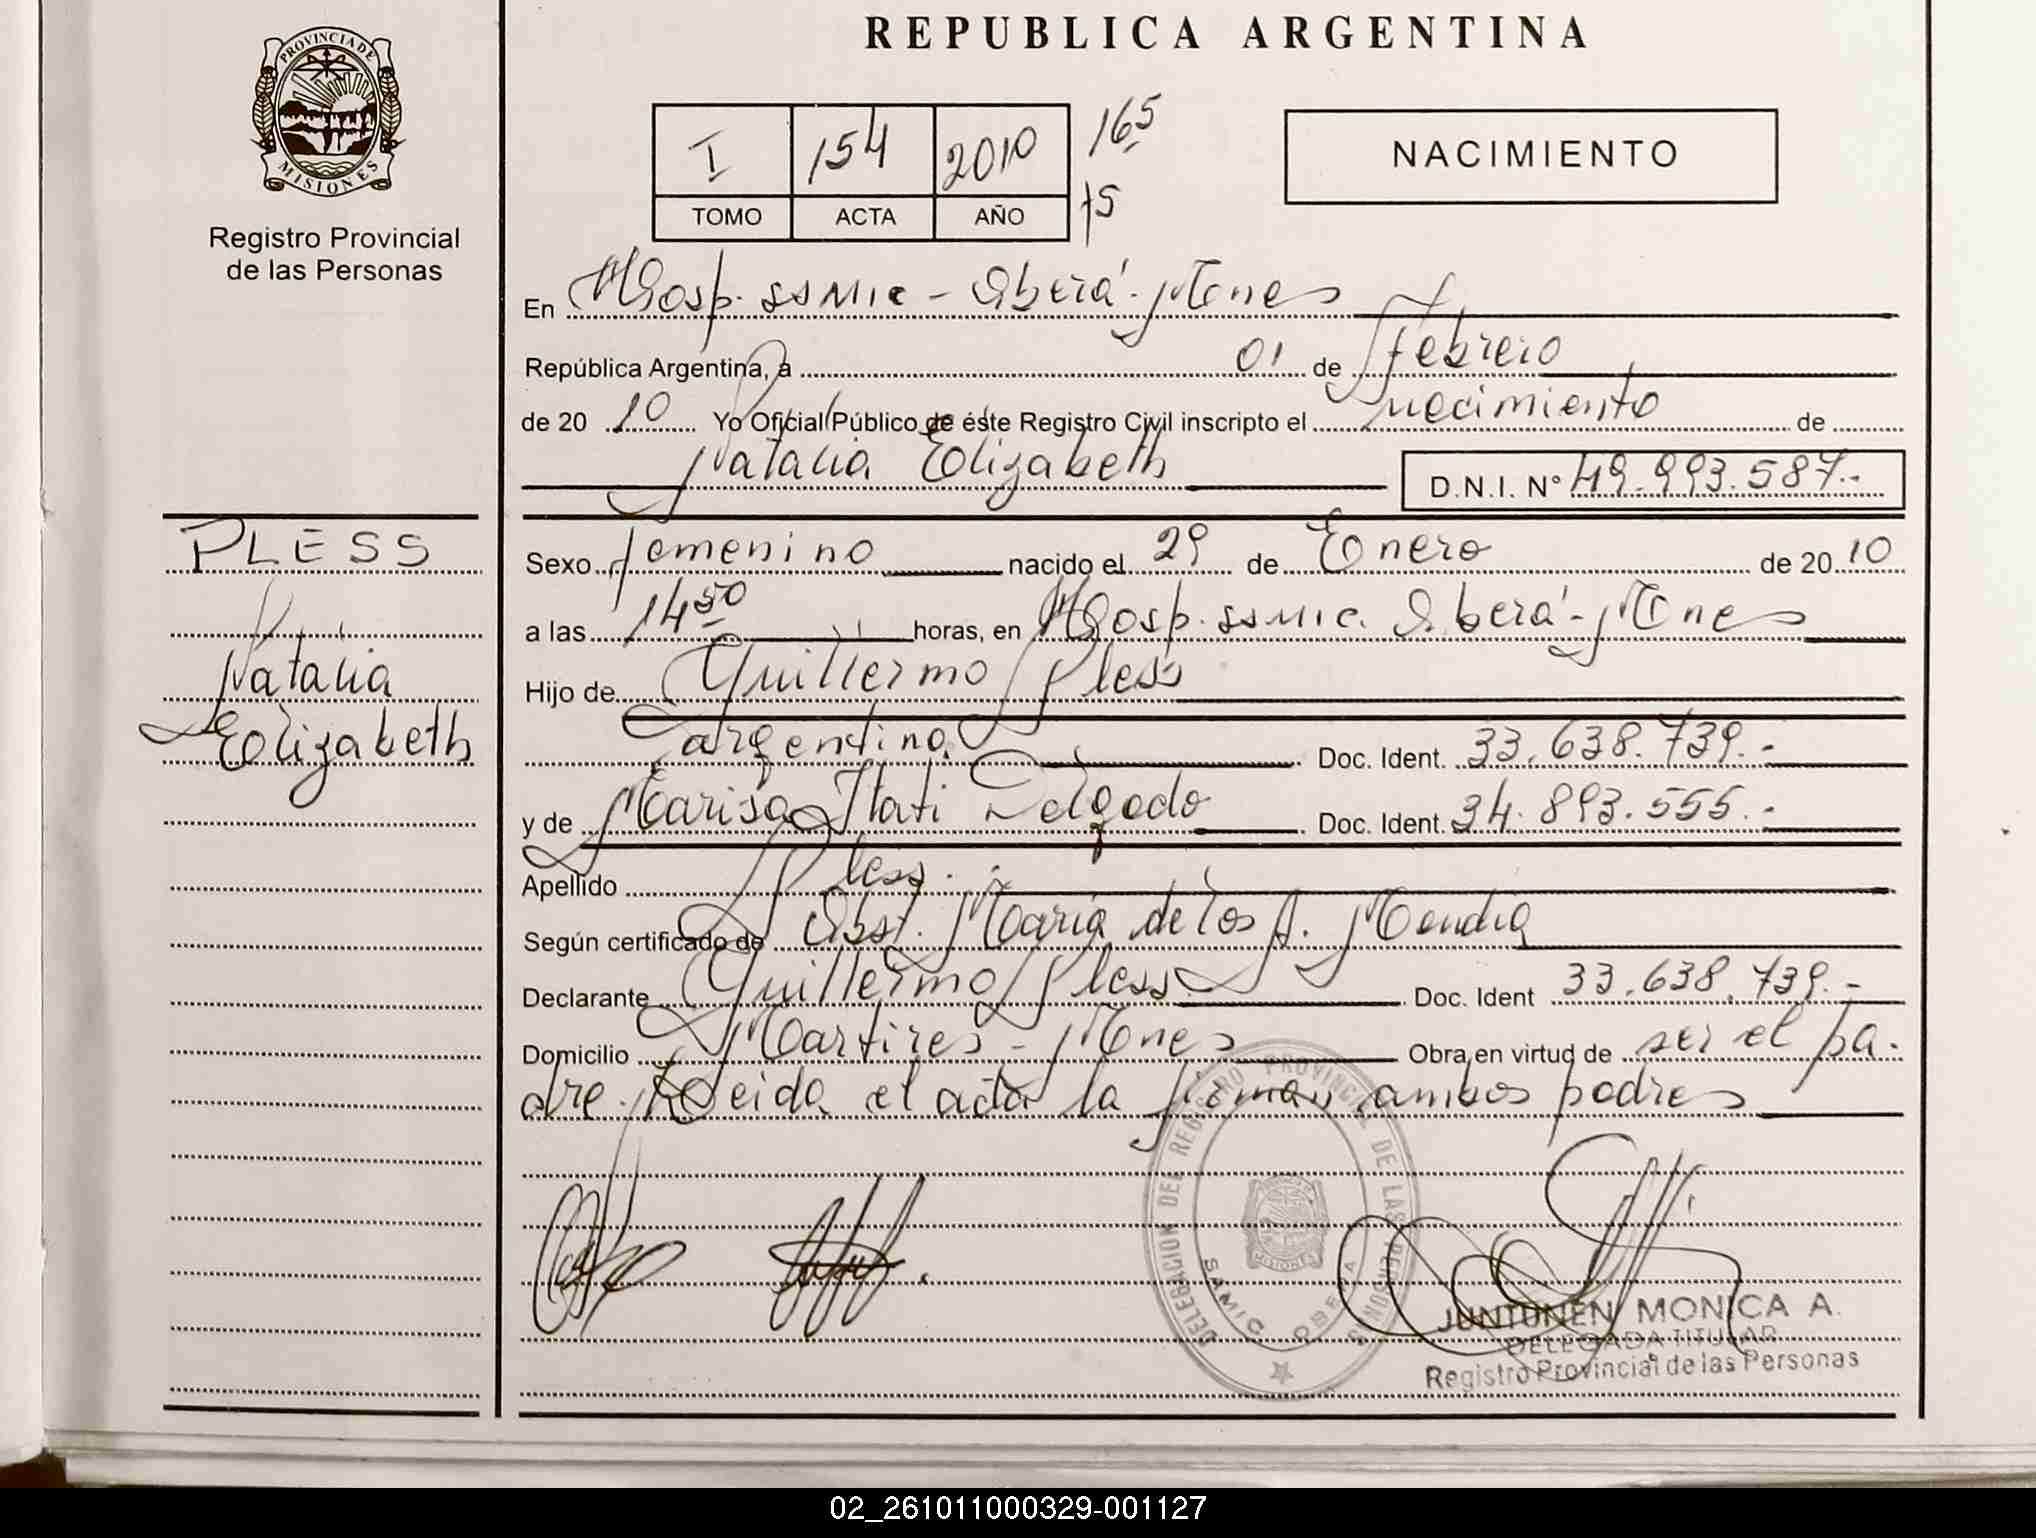 REPUBLICA ARGENTINA
PROVINCIA DE
MISIONES
Registro Provincial
de las Personas
I 154 2010 165
TOMO ACTA AÑO 75
NACIMIENTO
En Hosp. SAMIC - Oberá - Mnes
República Argentina, a 01 de febrero
de 20 10 Yo Oficial Público de éste Registro Civil inscripto el nacimiento de
Natalia Elizabeth D.N.I. N° 49.993.587.-
PLESS
Natalia
Elizabeth
Sexo femenino nacido el 29 de Enero de 20 10
a las 14 50 horas, en Hosp. SAMIC. Oberá - Mnes
Hijo de Guillermo Pless
argentino Doc. Ident. 33.638.739.-
y de Marisa Itati Delgado Doc. Ident. 34.893.555.-
Apellido Pless.
Según certificado de Obst. María de los A.
Declarante Guillermo Pless Doc. Ident 33.638.739.-
Domicilio Martires - Mnes Obra en virtud de ser el pa.
dre. Leida el acta la firman ambos padres
DELEGACION DEL REGISTRO PROVINCIAL DE LAS PERSONAS
SAMIC OBERA
JUNTUNEN MONICA A.
DELEGADA TITULAR
Registro Provincial de las Personas
02_261011000329-001127